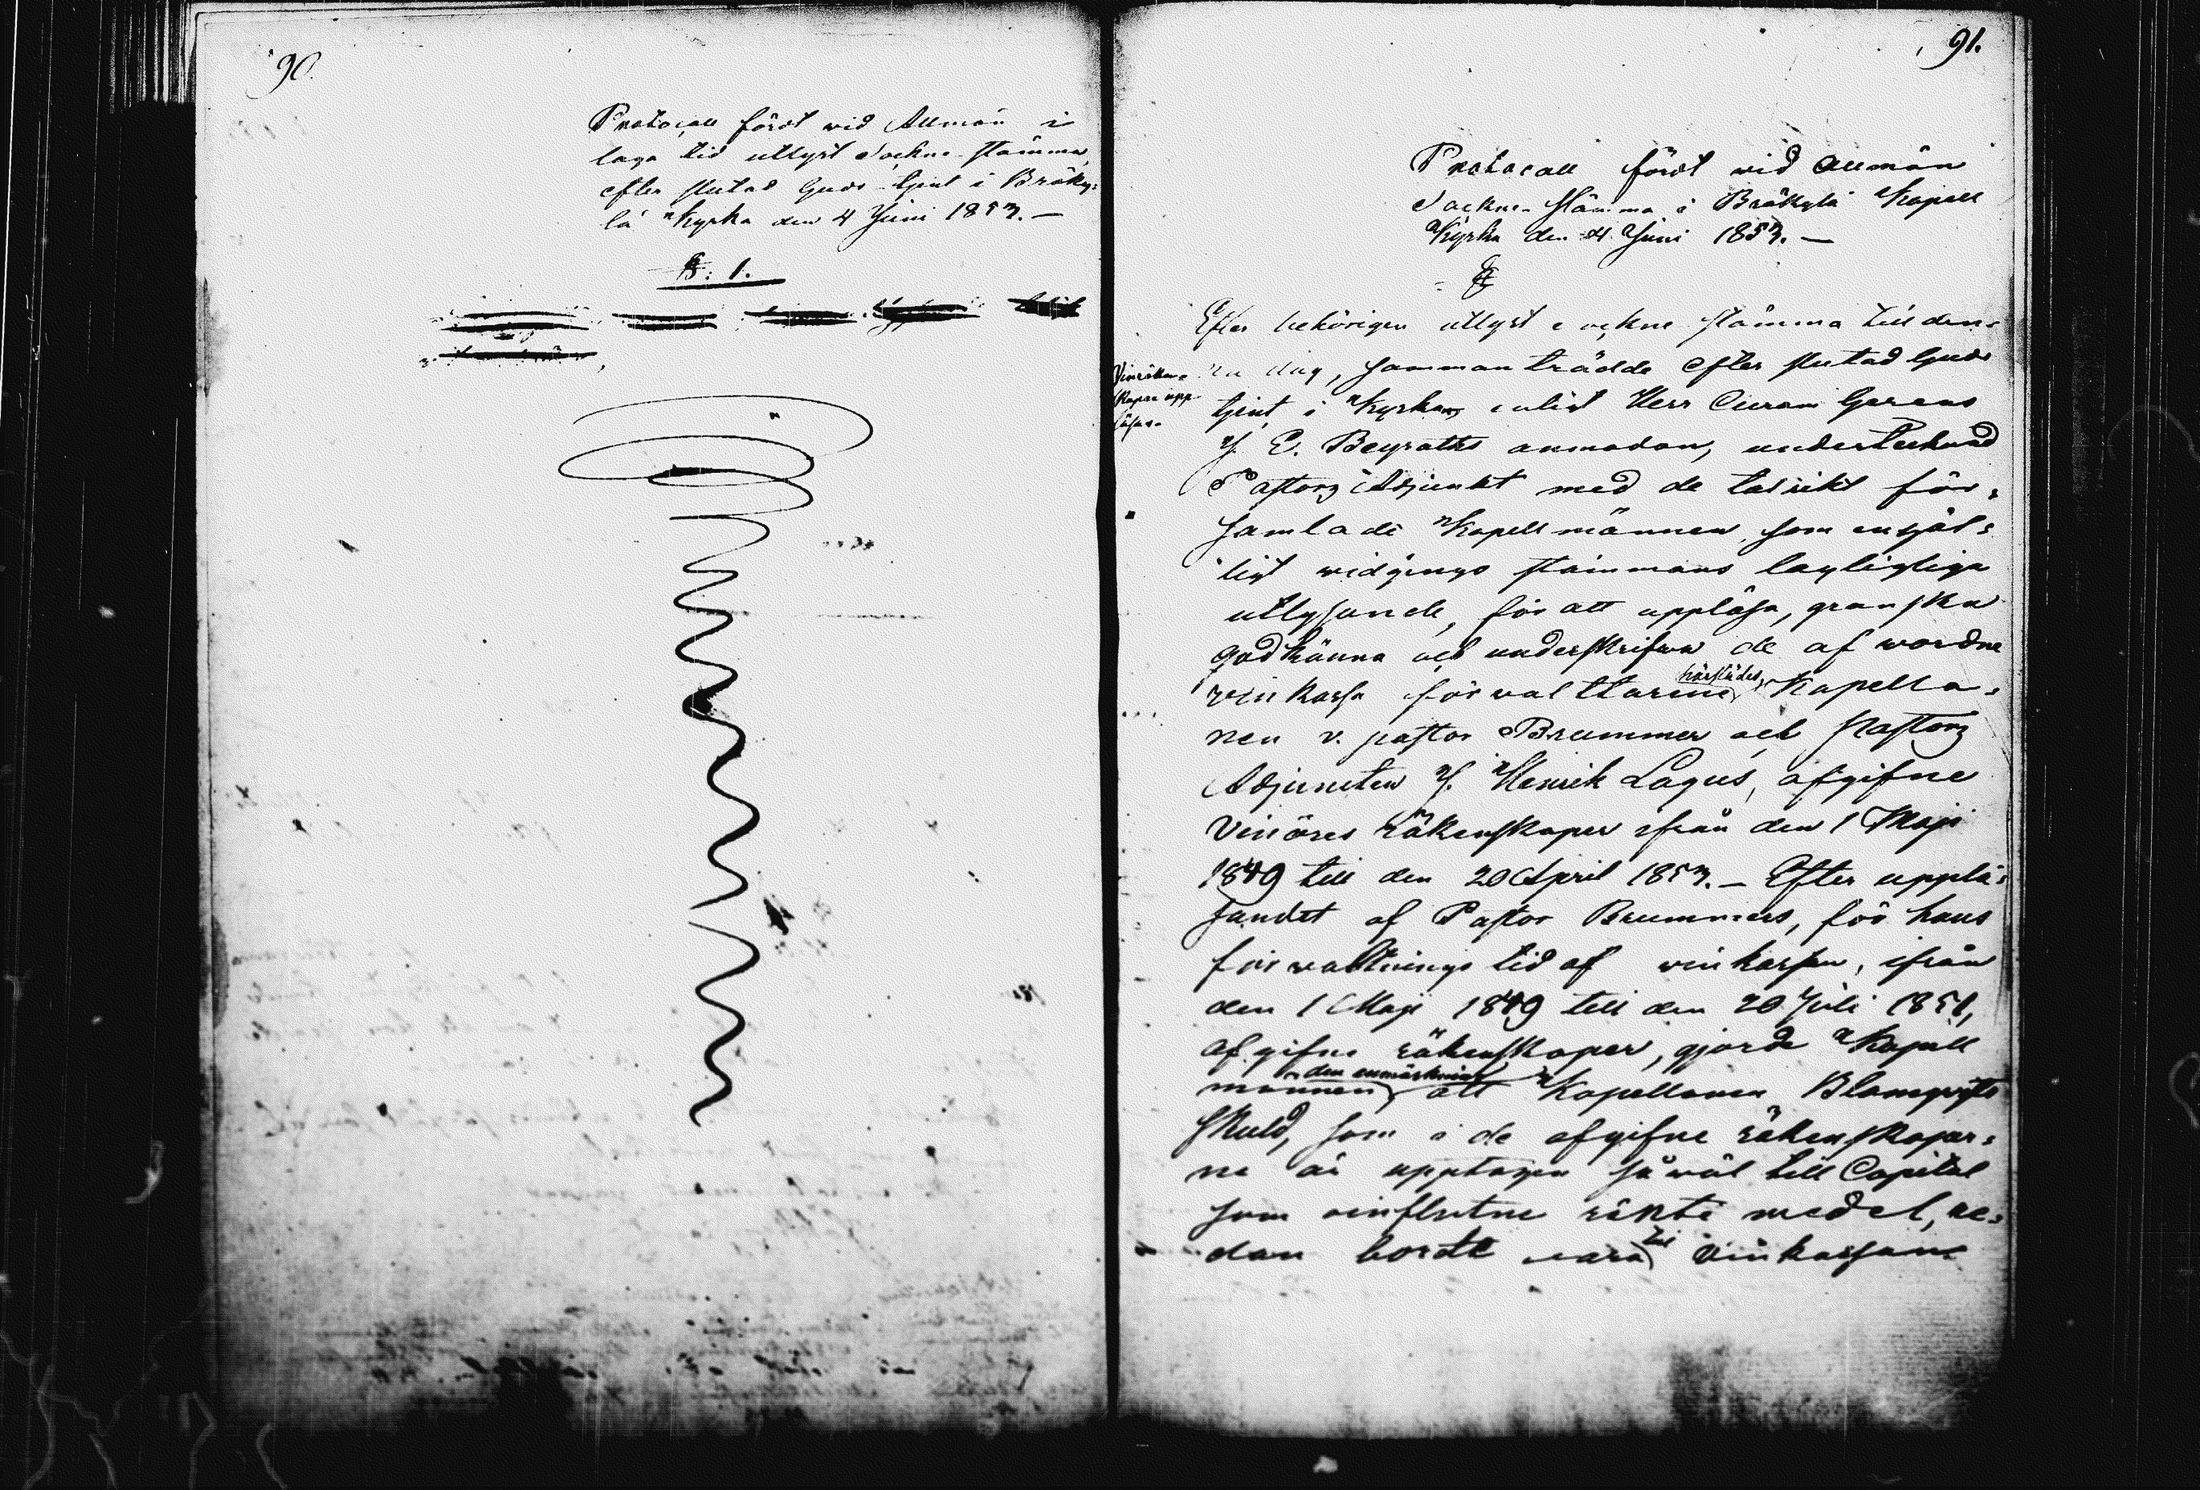 90.
Protocoll fördt wid Allmän i
laga tid utlyst Sockne-stämma,
efter slutad Guds-tjenst i Bräky-
lä Kyrka den 4 Juni 1853. —
§: 1.
91.
Protocoll fördt wid Allmän
Sockne-stämma i Bräkylä Kapell
Kyrka den 4 Juni 1853. —
§
Efter behörigen utlyst sockne stämma till den-
na dag, sammanträdde efter slutad Guds
tjenst i Kyrkan, enligt Herr Curam Gerens
J. E. Beyraths anmodan, undertecknad
Pastors Adjunkt med de talrikt för-
samlade Kapellmännen, som enhäl-
ligt widgingo stämmans lagligliga
utlysande, för att uppläsa, granska
godkänna och underskrifwa de af wordne
vinkassa förwaltarine härstädes, Kapella-
nen v. pastor Brummer och Pastors
Adjuncten J. Henrik Lagus, afgifne
Vinöres räkenskaper ifrån den 1 Maji
1849 till den 20 April 1853. — Efter upplä-
sandet af Pastor Brummers, för hans
förwaltnings tid af vinkassan, ifrån
den 1 Maji 1849 till den 20 Juli 1851,
afgifne räkenskaper, gjorde Kapell
männen den anmärkning att Kapellanen Blomqvists
skuld, som i de afgifne räkenskaper-
ne är upptagen såwäl till Capital
som oinflutne ränte medel, re-
dan bordt vara till vinkassan
Vinräken-
skaper upp-
läsas.